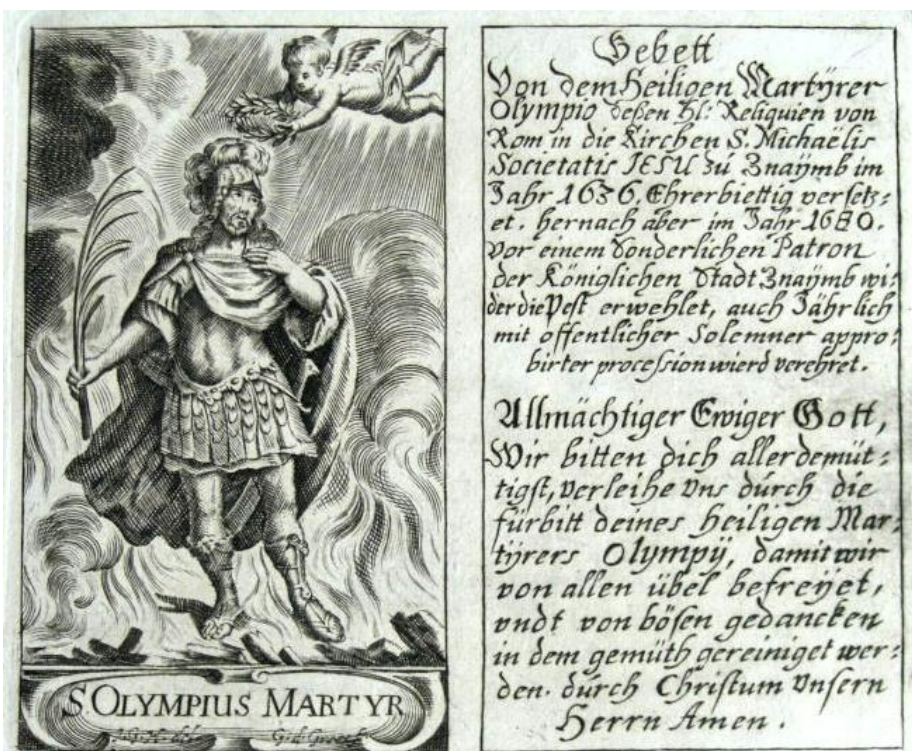 S. OLYMPIUS MARTYR
Gebett
Von dem Heiligen Martÿrer
Olympio deßen Hl: Reliquien von
Rom in die Kirchen S. Michaëlis
Societatis JESU zú Znaÿmb im
Jahr 1636. Ehrerbiettig versetz:
et. hernach aber im Jahr 1680.
vor einem Sonderlichen Patron
der Königlichen Stadt Znaÿmb wi:
der die Pest erwehlet, auch Jährlich
mit offentlicher Solemner appro:
birter procession wierd verehret.
Allmächtiger Ewiger Gott,
Wir bitten dich allerdemüt:
tigst, verleihe Vns dúrch die
fürbitt deines heiligen Mar:
tÿrers Olympÿ, damit wir
von allen übel befreÿet,
vndt von bösen gedancken
in dem gemüth gereiniget wer:
den. dúrch Christum Vnsern
Herrn Amen.